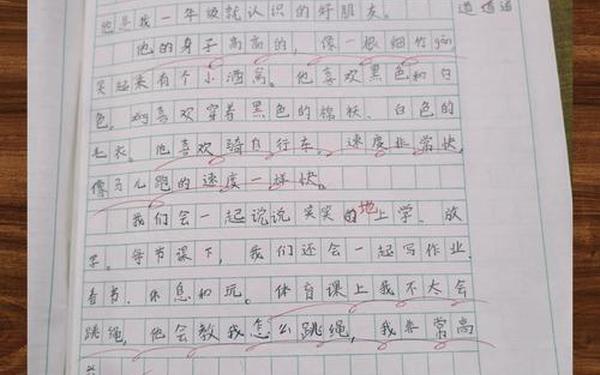 他是我一年级就认识的好朋友。
道道道
他的身子高高的，像一根细竹gān
笑起来有个小酒窝。他喜欢黑色和白
色，喜欢穿着黑色的棉袄、白色的
毛衣。他喜欢骑自行车，速度非常快，
像马儿跑的速度一样快。
我们会一起说说笑笑的地上学、放
学。每节课下，我们还会一起写作业、
看书、休息和玩。体育课上我不大会
跳绳，他会教我怎么跳绳，我非常高